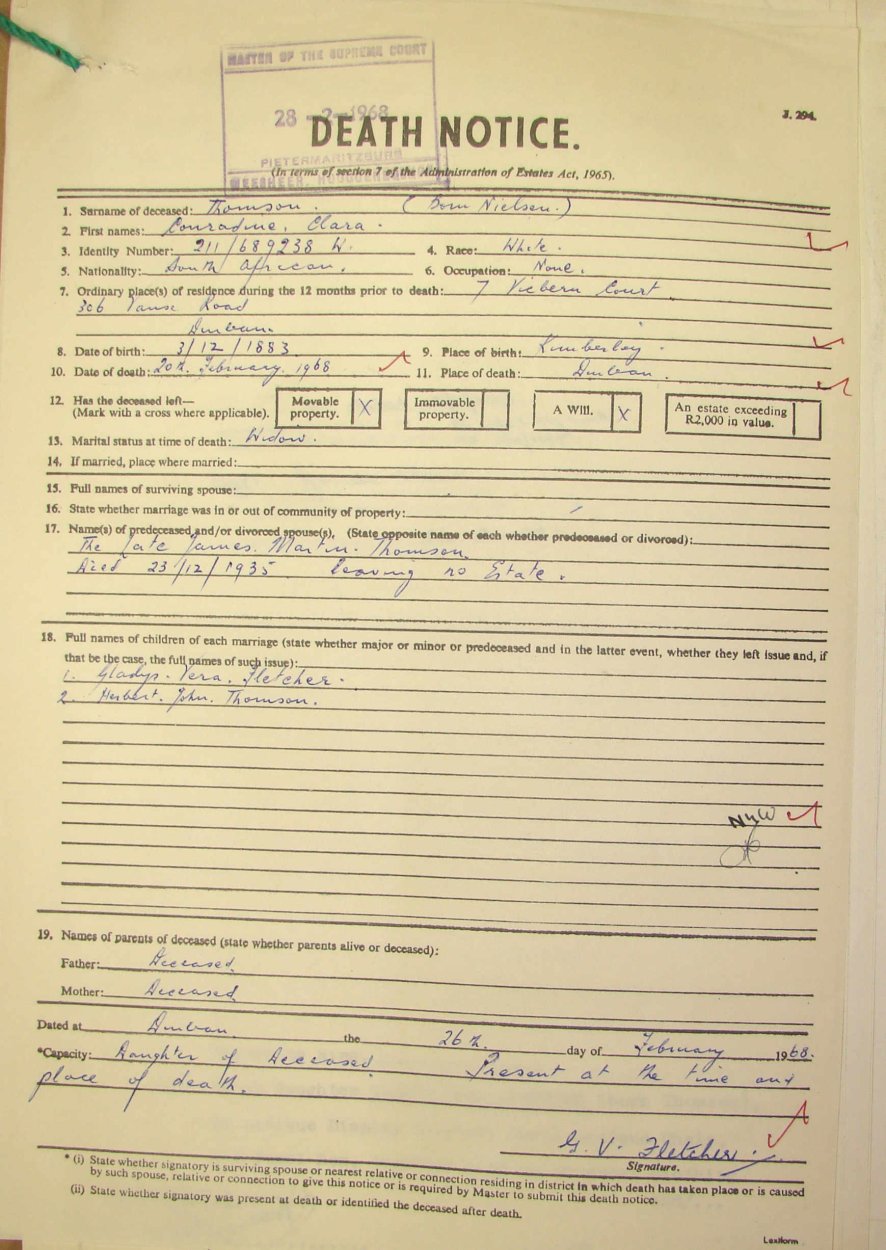 MASTER OF THE SUPREME COURT
28 -2-1968
PIETERMARITZBURG
J. 294.
DEATH NOTICE.
(In terms of section 7 of the Administration of Estates Act, 1965).
1. Surname of deceased: Thomson. (Born Nielsen.)
2. First names: Conradine, Clara.
3. Identity Number: 211/689238 W. 4. Race: White.
5. Nationality: South African. 6. Occupation: None.
7. Ordinary place(s) of residence during the 12 months prior to death: 7 Court
306 Road
Durban.
8. Date of birth: 3/12/1883 9. Place of birth: Kimberley.
10. Date of death: 20th. February. 1968 11. Place of death: Durban.
12. Has the deceased left— Movable Immovable A Will. X An estate exceeding
(Mark with a cross where applicable). property. X property. R2,000 in value.
13. Marital status at time of death: Widow.
14. If married, place where married:
15. Full names of surviving spouse:
16. State whether marriage was in or out of community of property:
17. Name(s) of predeceased and/or divorced spouse(s). (State opposite name of each whether predeceased or divorced):
The Late James. Martin. Thomson.
died 23/12/1935 leaving no Estate.
18. Full names of children of each marriage (state whether major or minor or predeceased and in the latter event, whether they left issue and, if
that be the case, the full names of such issue):
1. Gladys. Vera. Fletcher.
2. Herbert. John. Thomson.
19. Names of parents of deceased (state whether parents alive or deceased):
Father: Deceased
Mother: Deceased
Dated at Durban the 26th. day of February 1968.
*Capacity: Daughter of Deceased. Present at the time and
place of death.
G. V. Fletcher.
Signature.
* (i) State whether signatory is surviving spouse or nearest relative or connection residing in district in which death has taken place or is caused
by such spouse, relative or connection to give this notice or is required by Master to submit this death notice.
(ii) State whether signatory was present at death or identified the deceased after death.
Lexiform